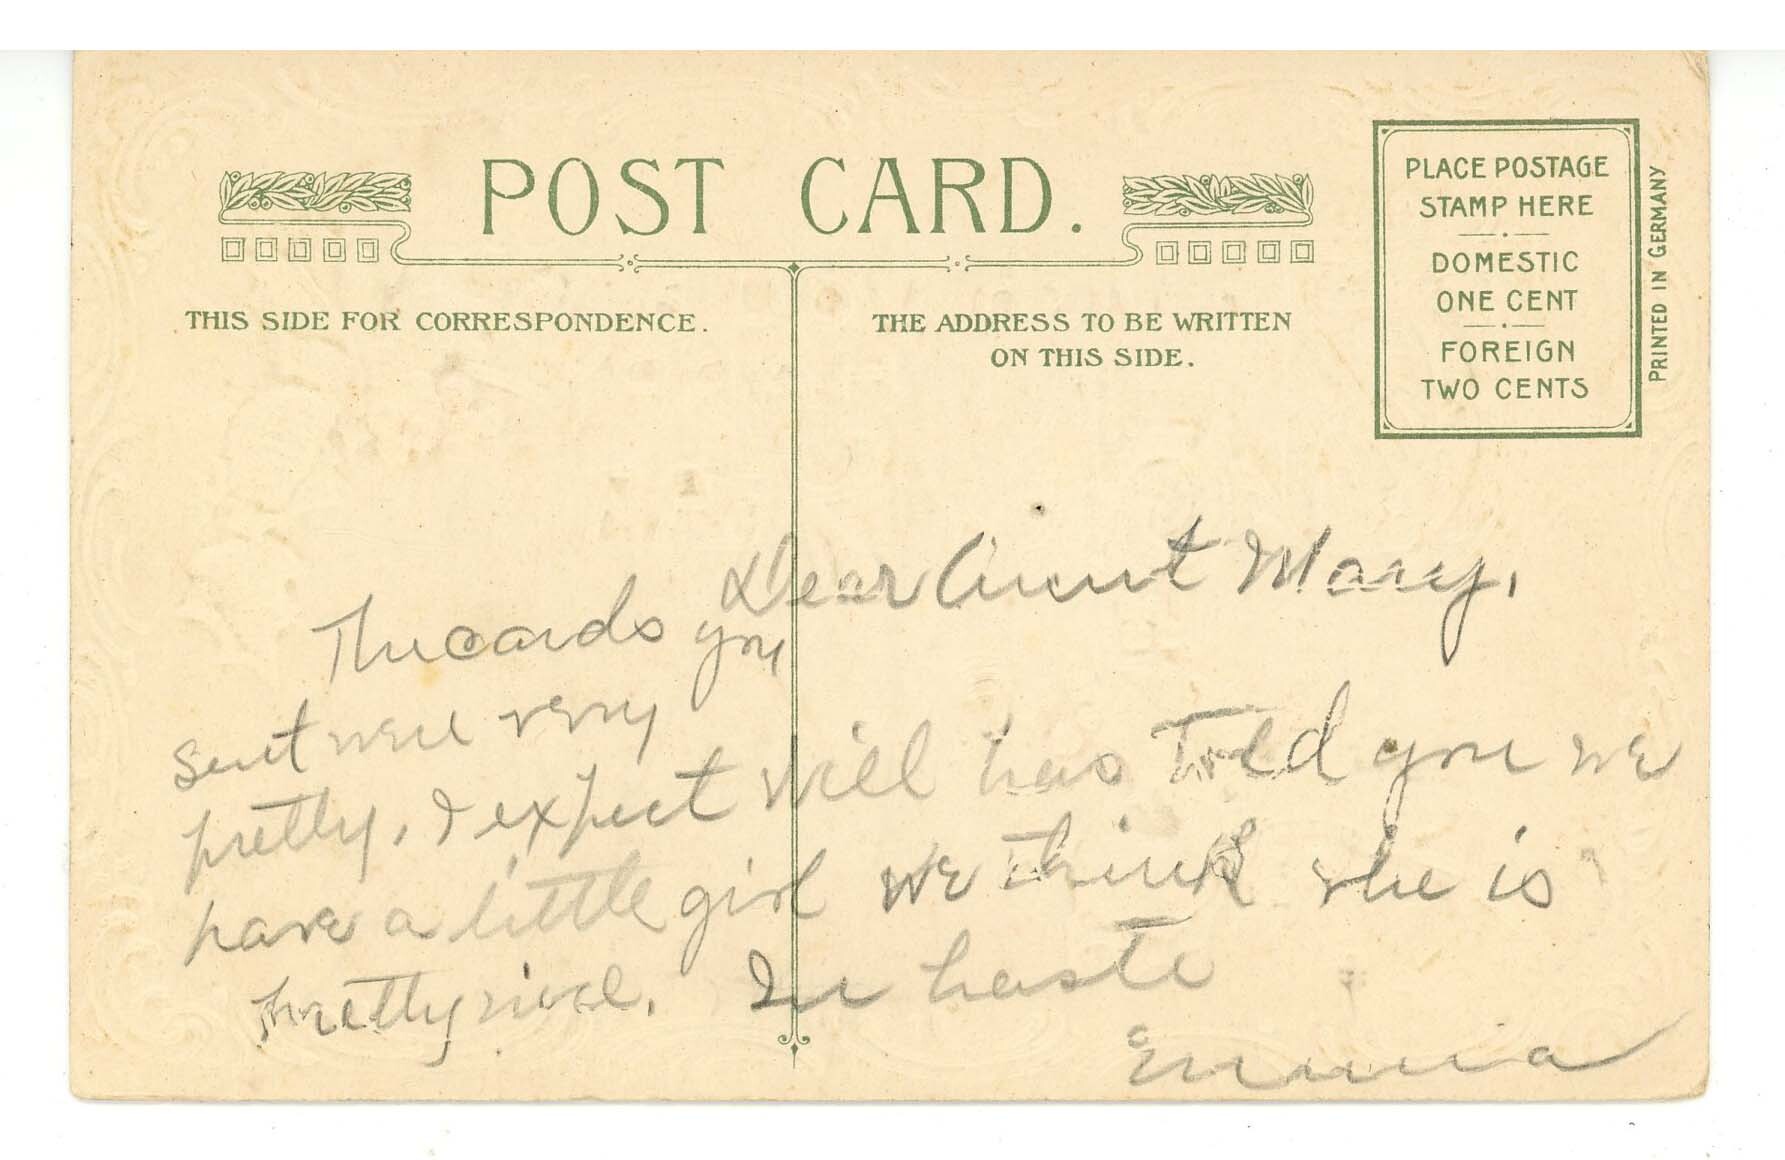 POST CARD.
THIS SIDE FOR CORRESPONDENCE.
THE ADDRESS TO BE WRITTEN
ON THIS SIDE.
PLACE POSTAGE
STAMP HERE
DOMESTIC
ONE CENT
FOREIGN
TWO CENTS
PRINTED IN GERMANY
Dear Aunt Mary,
The cards you
sent were very
pretty. I expect Will has Told you we
have a little girl we think she is
pretty nice. In haste
Emma